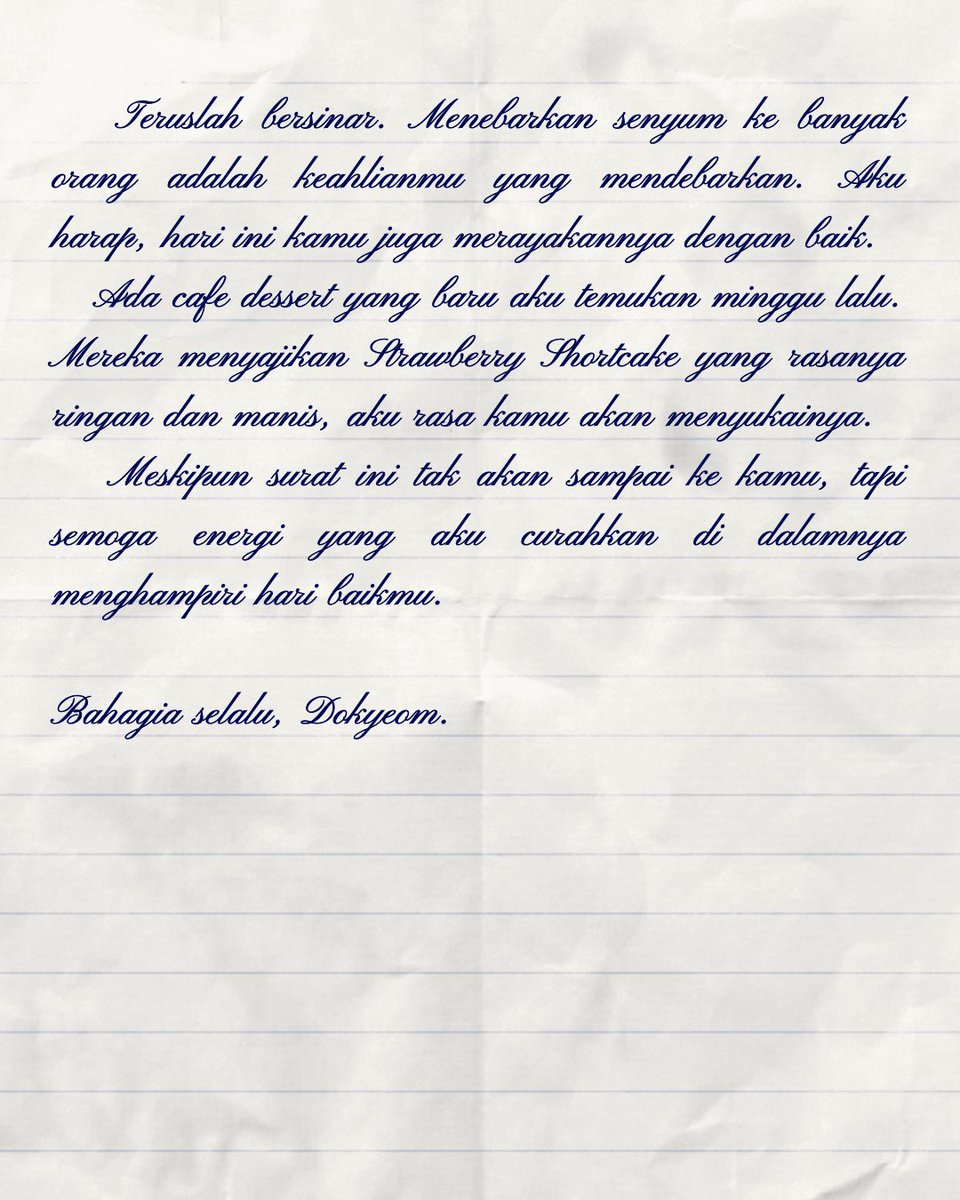 Teruslah bersinar. Menebarkan senyum ke banyak
orang adalah keahlianmu yang mendebarkan. Aku
harap, hari ini kamu juga merayakannya dengan baik.
Ada cafe dessert yang baru aku temukan minggu lalu.
Mereka menyajikan Strawberry Shortcake yang rasanya
ringan dan manis, aku rasa kamu akan menyukainya.
Meskipun surat ini tak akan sampai ke kamu, tapi
semoga energi yang aku curahkan di dalamnya
menghampiri hari baikmu.
Bahagia selalu, Dokyeom.